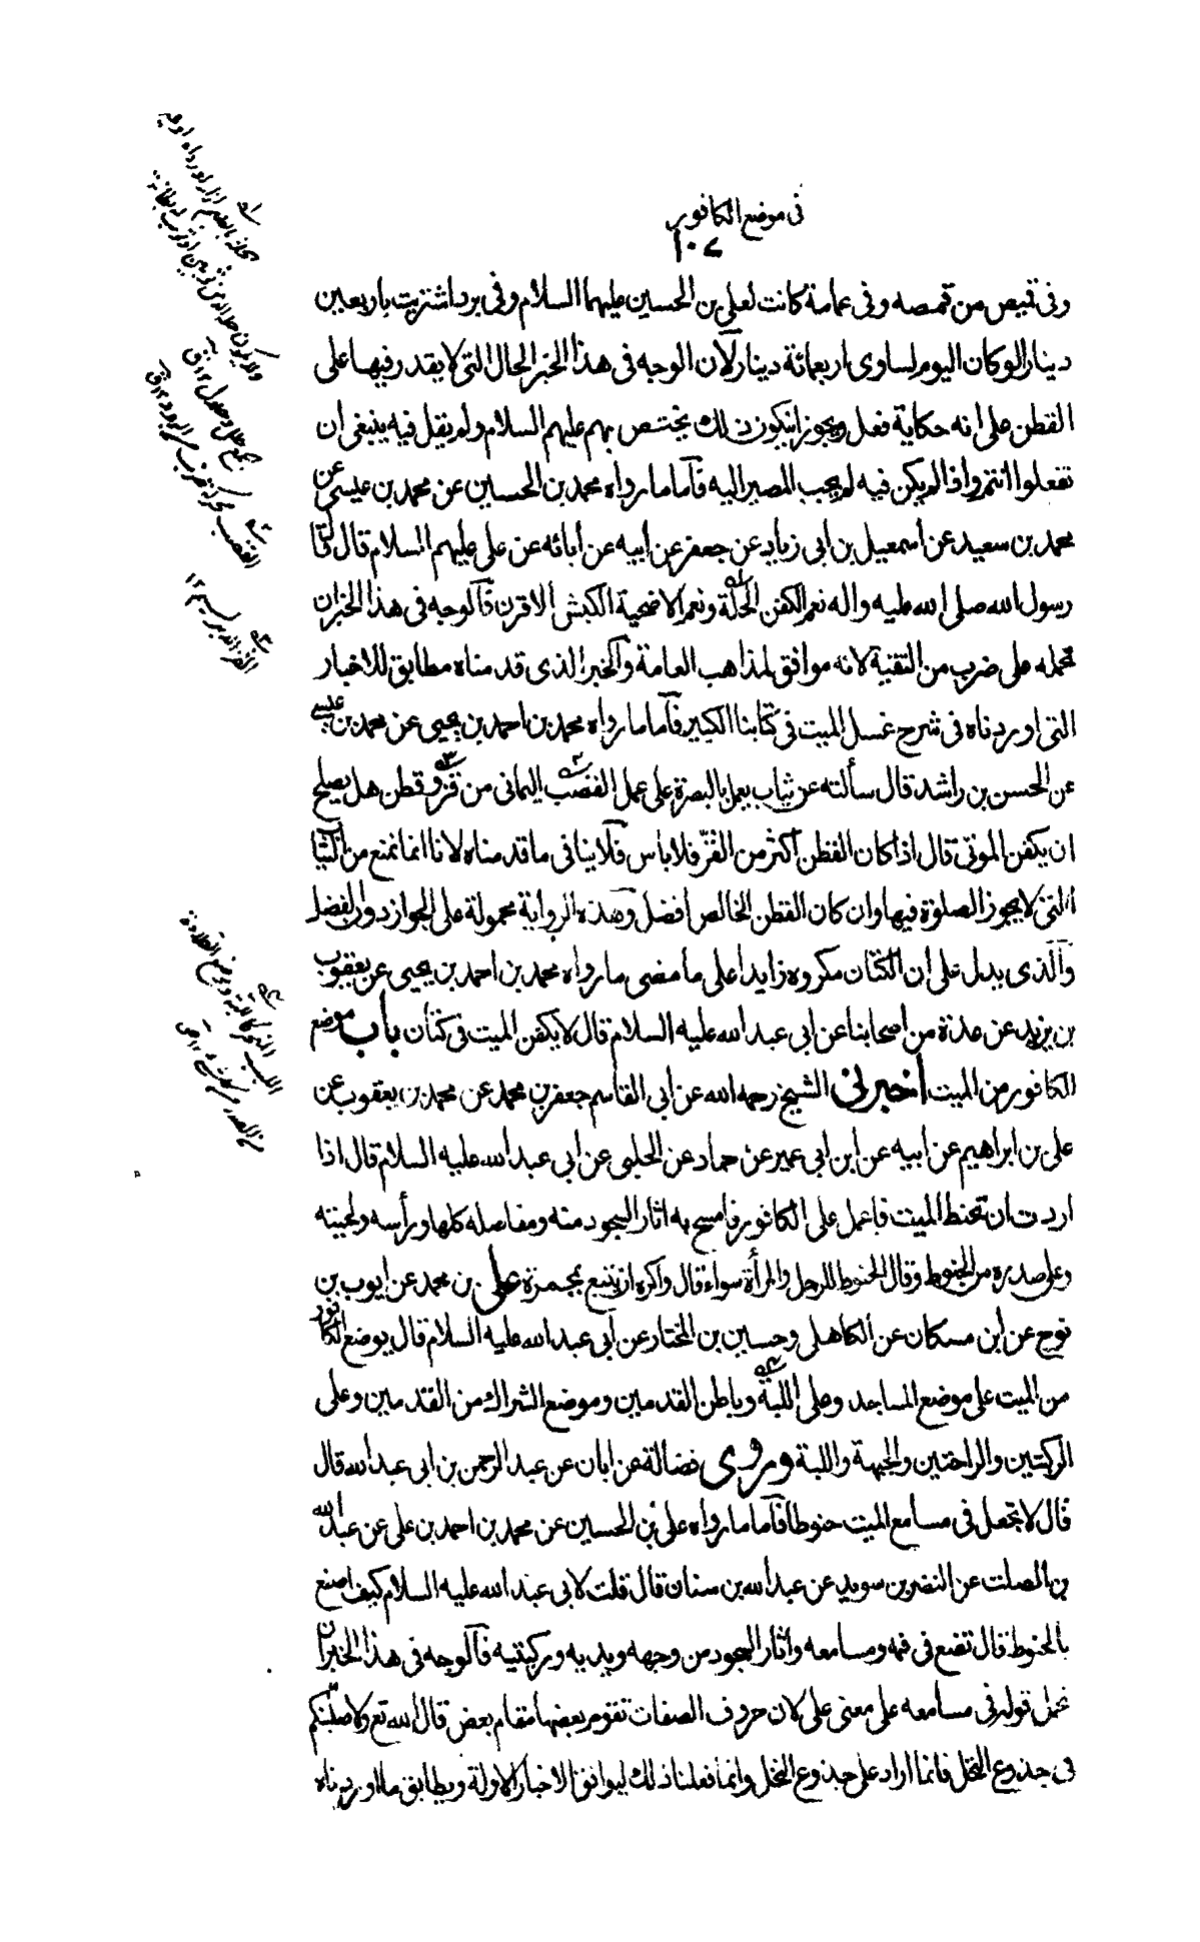 فى موضع الكافور
١٠٧
وفى قميص من قمصه وفى عمامة كانت لعلى بن الحسين عليهما السلام وفى برد اشتريت باربعين
دينارا لو كان اليوم لساوى اربعمائة دينار لان الوجه فى هذا الخبر الحال التى لا يقدر فيها على
القطن على انه حكاية فعل ويجوز ان يكون ذلك يختص بهم عليهم السلام ولم يقل فيه ينبغى ان
تفعلوا انتم واذا لم يكن فيه لم يجب المصير اليه فاما ما رواه محمد بن الحسين عن محمد بن عيسى عن
محمد بن سعيد عن اسمعيل بن ابى زياد عن جعفر عن ابيه عن ابائه عن على عليهم السلام قال قال
رسول الله صلى الله عليه واله نعم الكفن الحلة ونعم الاضحية الكبش الاقرن فالوجه فى هذا الخبر ان
نحمله على ضرب من التقية لانه موافق لمذاهب العامة والخبر الذى قدمناه مطابق للاخبار
التى اوردناه فى شرح غسل الميت فى كتابنا الكبير فاما ما رواه محمد بن احمد بن يحيى عن محمد بن عيسى
عن الحسن بن راشد قال سألته عن ثياب يعمل بالبصرة على عمل القصب اليمانى من قز وقطن هل يصلح
ان يكفن الموتى قال اذا كان القطن اكثر من القز فلا باس فلا ينافى ما قدمناه لانا انما نمنع من الثيا
التى لا يجوز الصلوة فيها وان كان القطن الخالص افضل وهذه الرواية محمولة على الجواز دون الفضل
والذى يدل على ان الكتان مكروه زايدا على ما مضى ما رواه محمد بن احمد بن يحيى عن يعقوب
بن يزيد عن عدة من اصحابنا عن ابى عبد الله عليه السلام قال لا يكفن الميت فى كتان باب موضع
الكافور من الميت اخبرنى الشيخ رحمه الله عن ابى القاسم جعفر بن محمد عن محمد بن يعقوب عن
على بن ابراهيم عن ابيه عن ابن ابى عمير عن حماد عن الحلبى عن ابى عبد الله عليه السلام قال اذا
اردت ان تحنط الميت فاعمل على الكافور فامسح به اثار السجود منه ومفاصله كلها ورأسه ولحيته
وعلى صدره من الحنوط وقال الحنوط للرجل والمرأة سواء قال واكره ان يتبع بمجمرة على بن محمد عن ايوب بن
نوح عن ابن مسكان عن الكاهلى وحسين بن المختار عن ابى عبد الله عليه السلام قال يوضع الكافور
من الميت على موضع المساجد وعلى اللبة وباطن القدمين وموضع الشراك من القدمين وعلى
الركبتين والراحتين والجبهة واللبة وروى فضالة عن ابان عن عبد الرحمن بن ابى عبد الله قال
قال لا تجعل فى مسامع الميت حنوطا فاما ما رواه على بن الحسين عن محمد بن احمد بن على عن عبد الله
بن الصلت عن النضر بن سويد عن عبد الله بن سنان قال قلت لابى عبد الله عليه السلام كيف اصنع
بالحنوط قال تضع فى فمه ومسامعه واثار السجود من وجهه ويديه وركبتيه فالوجه فى هذا الخبر ان
نحمل قوله فى مسامعه على معنى على لان حروف الصفات تقوم بعضها مقام بعض قال الله تع ولاصلبنكم
فى جذوع النخل فانما اراد على جذوع النخل وانما فعلنا ذلك ليوافق الاخبار الاولة ويطابق ما اوردناه